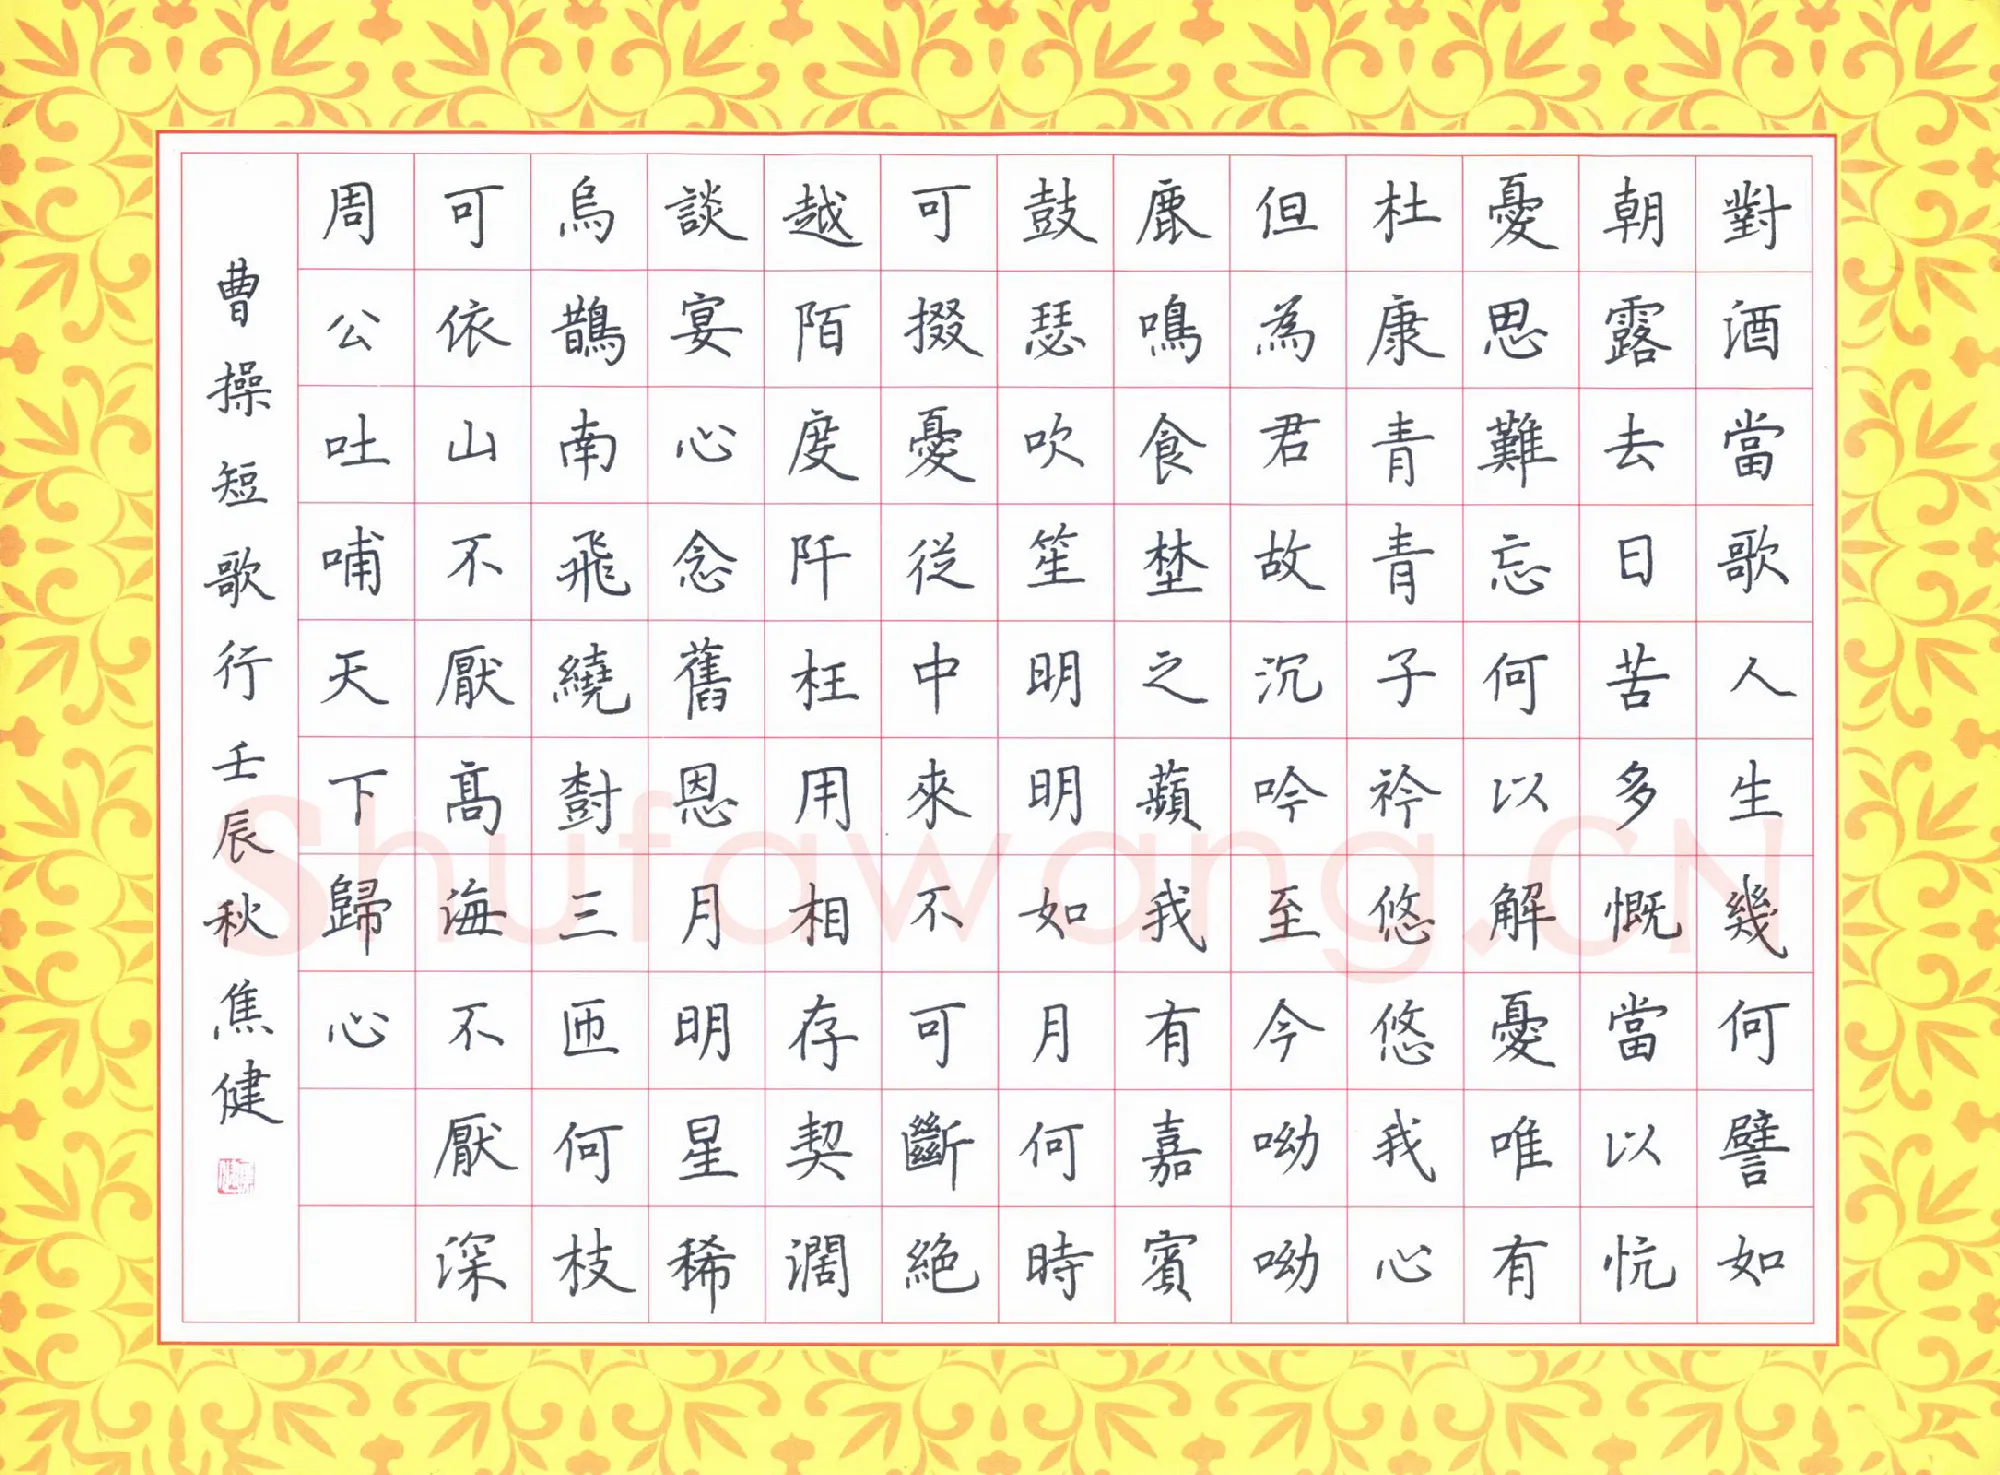 對酒當歌人生幾何譬如
朝露去日苦多慨當以忼
憂思難忘何以解憂唯有
杜康青青子衿悠悠我心
但為君故沉吟至今呦呦
鹿鳴食埜之蘋我有嘉賓
鼓瑟吹笙明明如月何時
可掇憂従中來不可斷絕
越陌度阡枉用相存契濶
談宴心念舊恩月明星稀
烏鵲南飛繞樹三匝何枝
可依山不厭高海不厭深
周公吐哺天下歸心
曹操短歌行壬辰秋焦健
Shufawang.CN